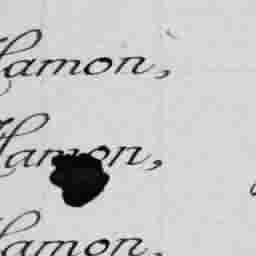 Hamon,
Hamon,
Hamon,